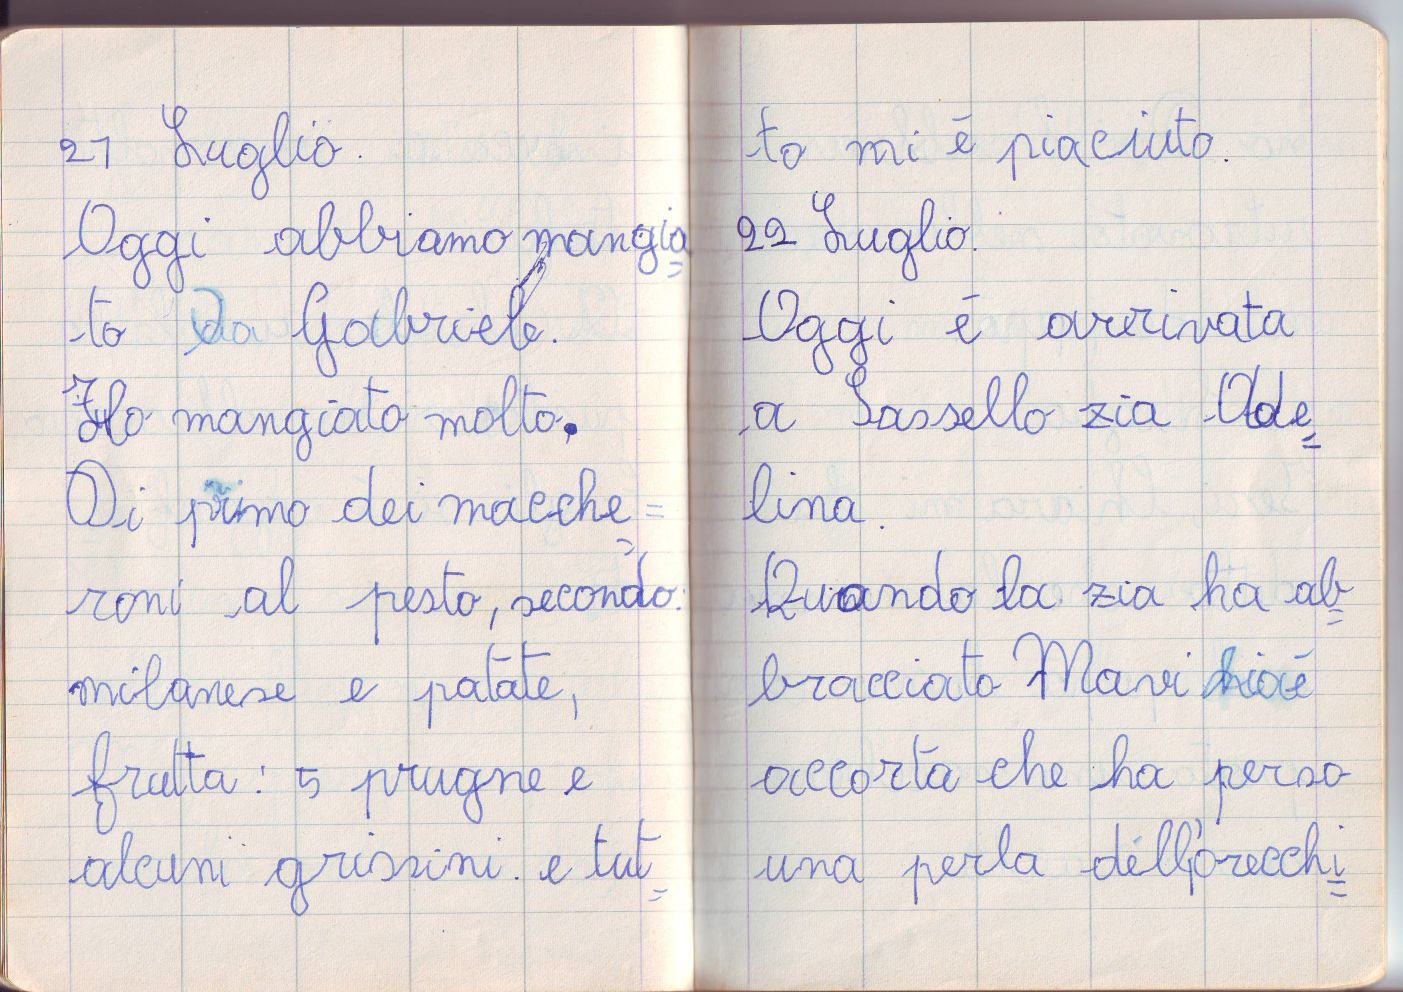 21 Luglio.
Oggi abbiamo mangia=
to da Gabriele.
Ho mangiato molto.
Di primo dei macche=
roni al pesto, secondo:
milanese e patate,
frutta: 5 prugne e
alcuni grissini. e tut=
to mi é piaciuto.
22 Luglio.
Oggi é arrivata
a Sassello zia Ade=
lina.
Quando la zia ha ab=
bracciato Mavi si é
accorta che ha perso
una perla dell'orecchi=